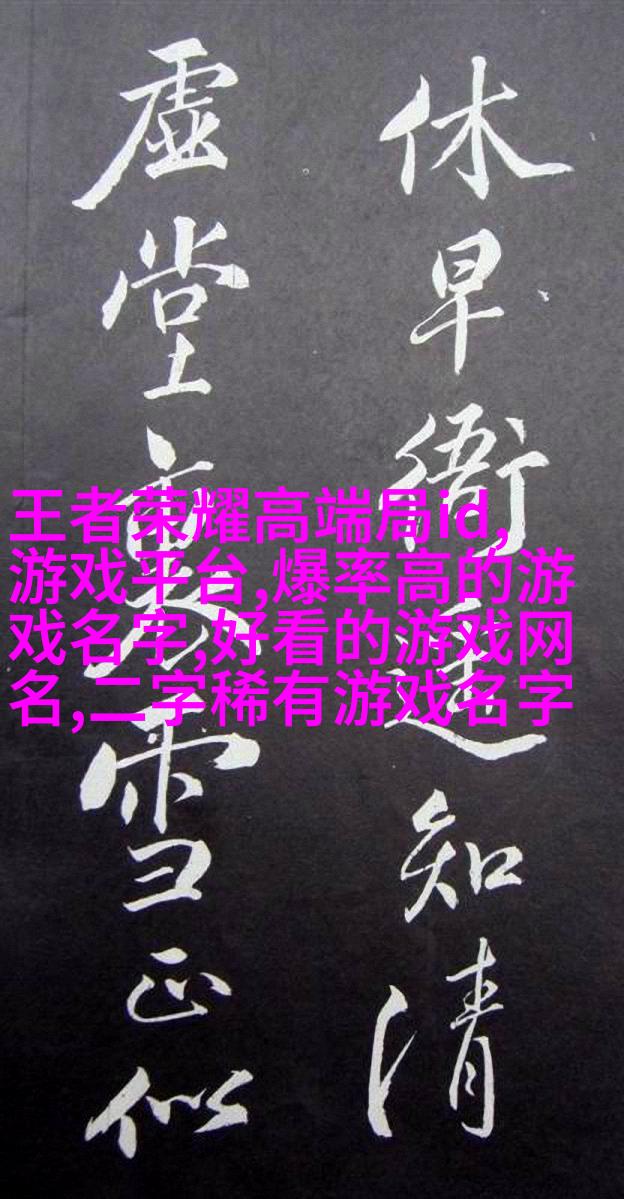 休早衙遥知清
虚堂裏雪正似
王者荣耀高端局id,
游戏平台,爆率高的游
戏名字,好看的游戏网
名,二字稀有游戏名字